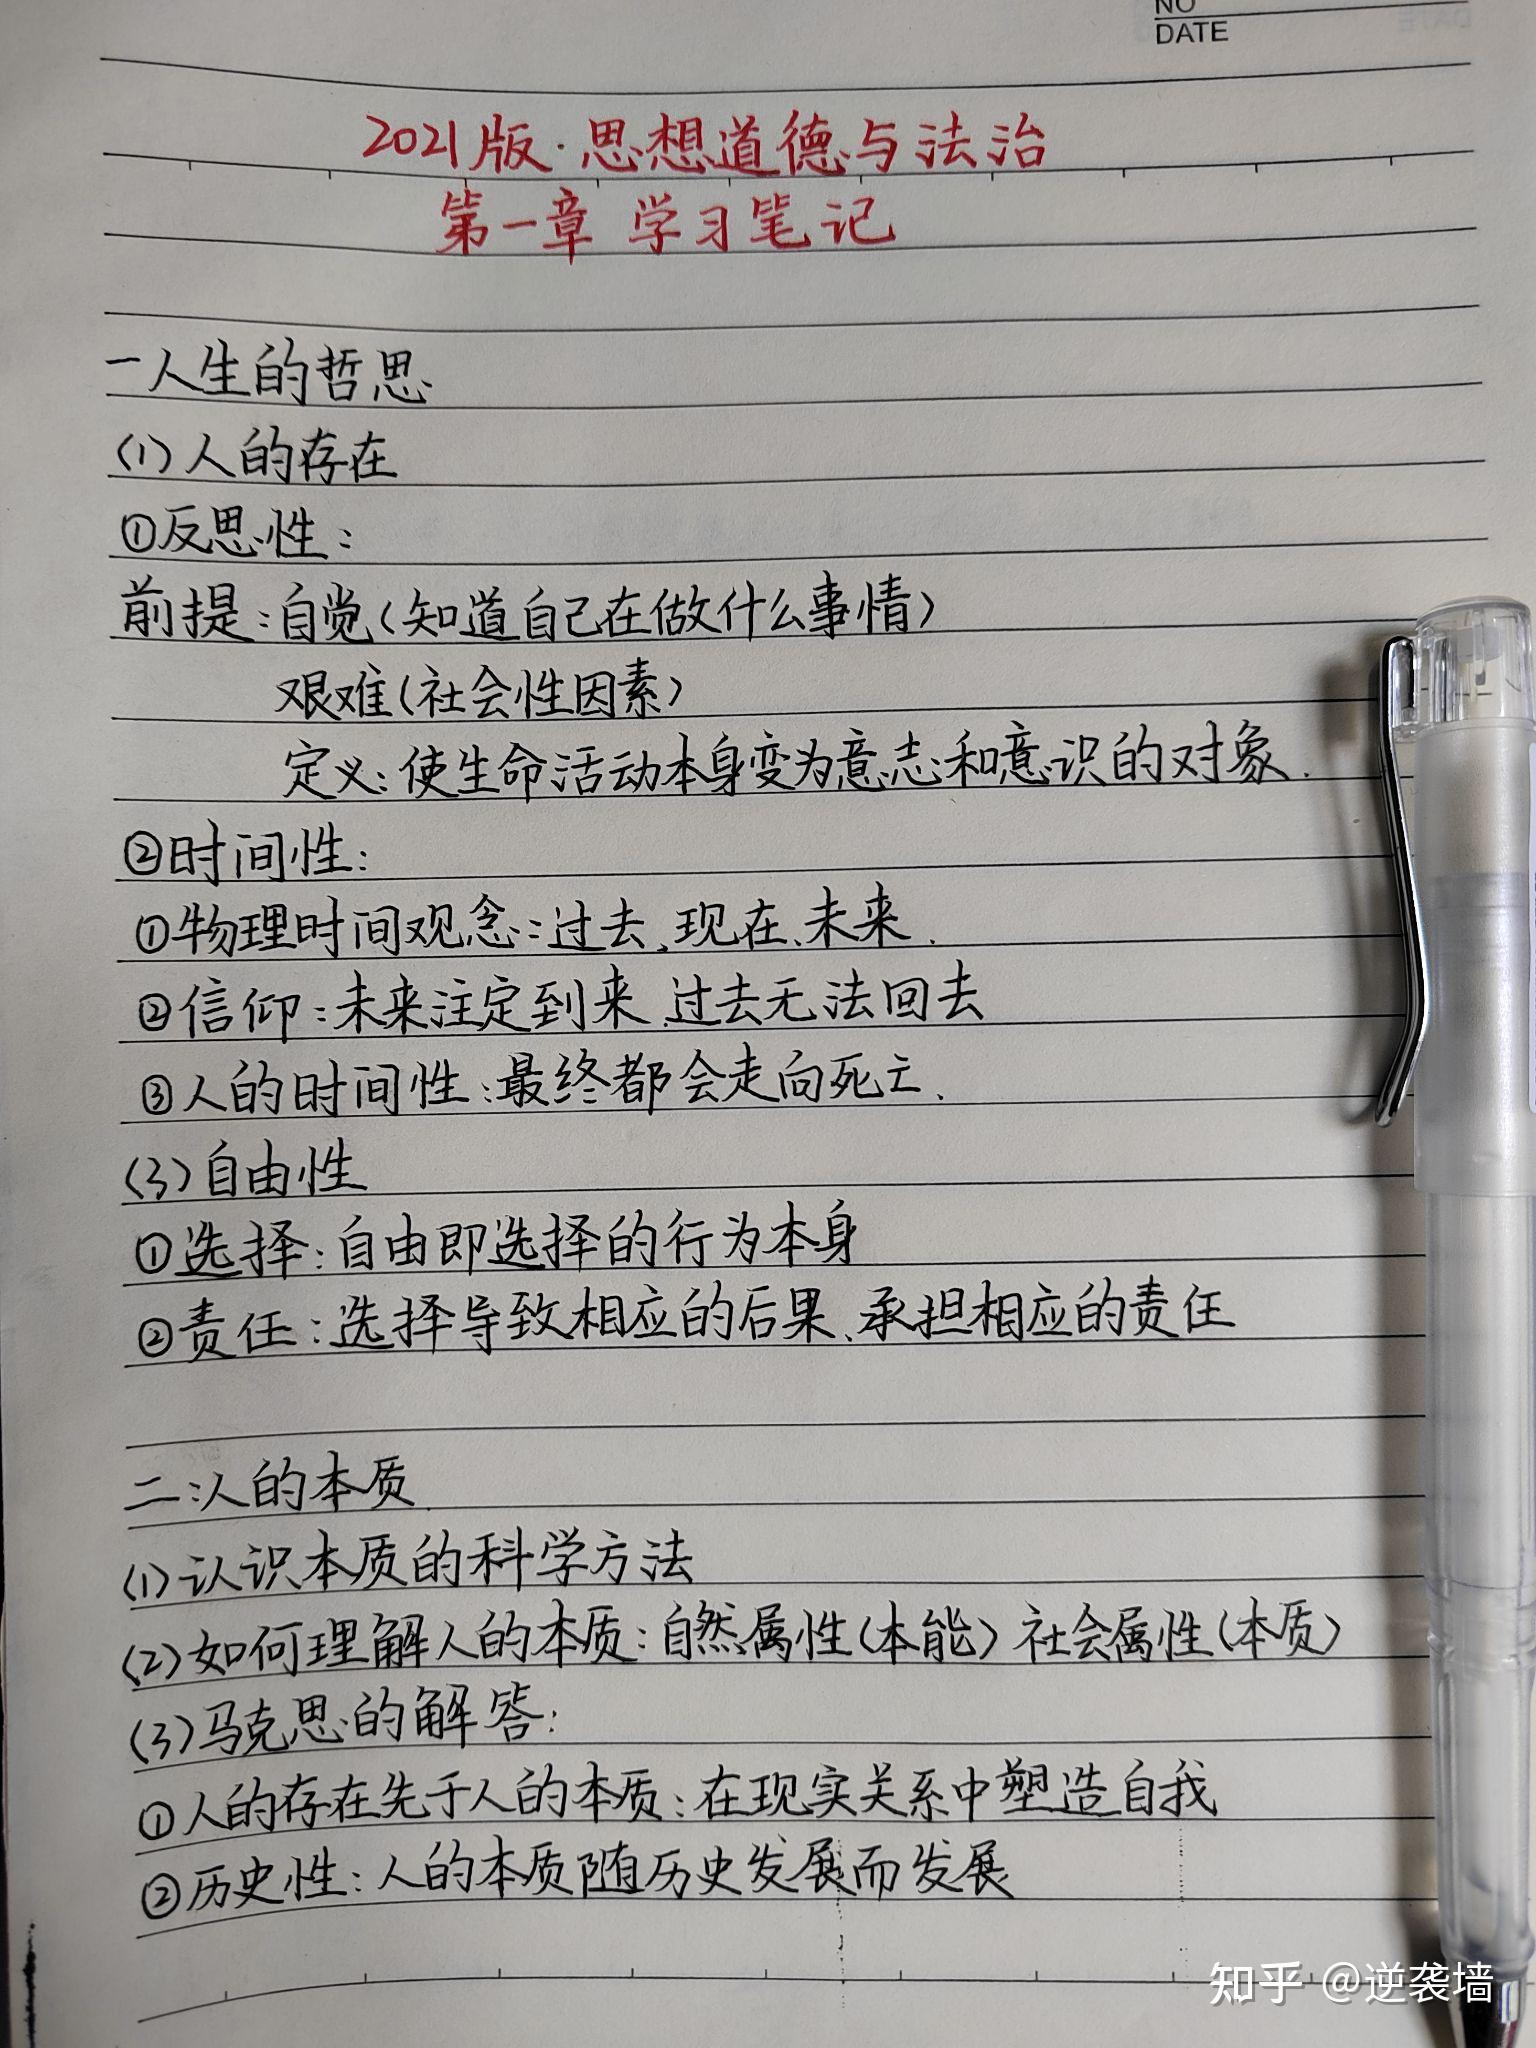 NO
DATE
2021版·思想道德与法治
第一章 学习笔记
一人生的哲思
(1)人的存在
①反思性:
前提:自觉(知道自己在做什么事情)
艰难(社会性因素)
定义:使生命活动本身变为意志和意识的对象.
②时间性:
①物理时间观念:过去、现在、未来.
②信仰:未来注定到来、过去无法回去
③人的时间性:最终都会走向死亡.
(3)自由性
①选择:自由即选择的行为本身
②责任:选择导致相应的后果、承担相应的责任
二:人的本质.
(1)认识本质的科学方法
(2)如何理解人的本质:自然属性(本能) 社会属性(本质)
(3)马克思的解答:
①人的存在先于人的本质:在现实关系中塑造自我
②历史性:人的本质随历史发展而发展
知乎 @逆袭墙